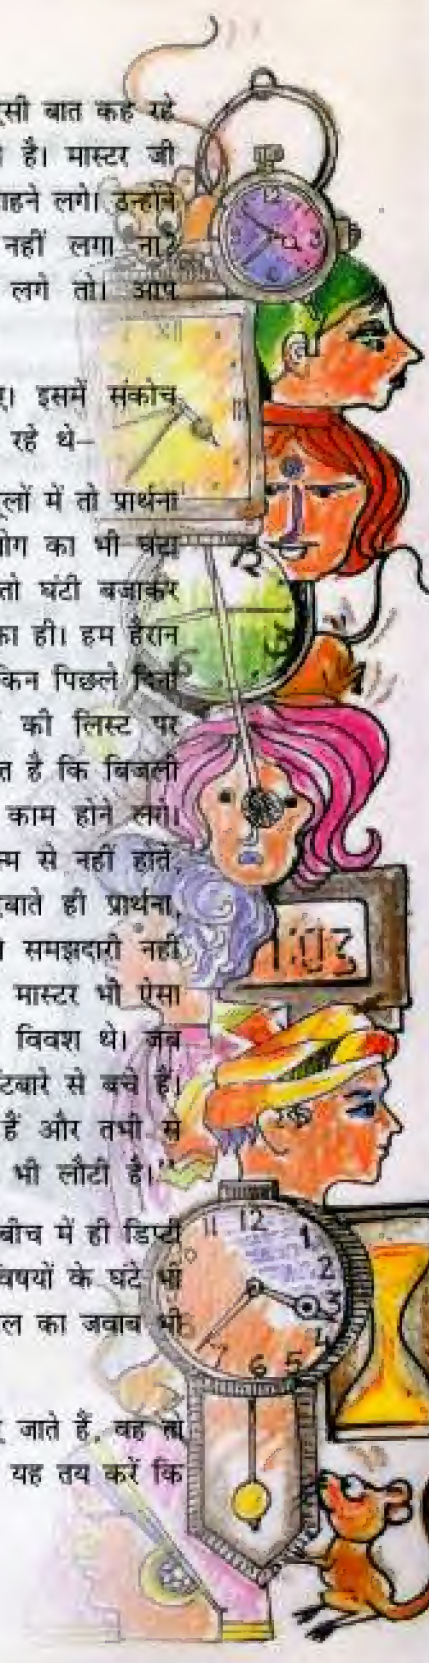 सी बात कह रहे
है। मास्टर जी
हने लगे। उन्होंने
नहीं लगा ना?
लगे तो। आप
इसमें संकोच
रहे थे–
लों में तो प्रार्थना
योग का भी घंटा
तो घंटी बजाकर
का ही। हम हैरान
किन पिछले दिनों
की लिस्ट पर
त है कि बिजली
काम होने लगे।
न्म से नहीं होते,
बाते ही प्रार्थना,
समझदारी नहीं
मास्टर भी ऐसा
विवश थे। जब
टबारे से बचे हैं।
हैं और तभी से
भी लौटी है।''
बीच में ही डिप्टी
वषयों के घंटे भी
ल का जवाब भी
जाते हैं, वह तो
यह तय करें कि
12
3
XII
III
1:03
11 12 1
2
3
4
7 6 5